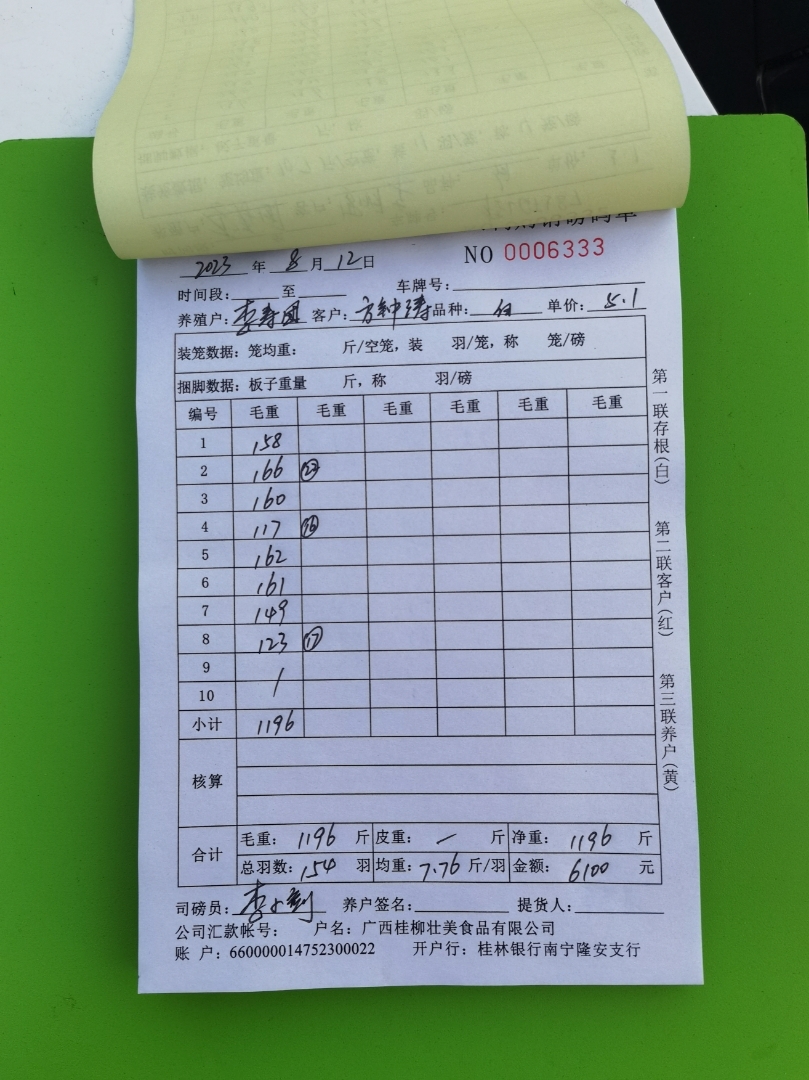 NO 0006333
2023 年 8 月 12 日
时间段: 至 车牌号:
养殖户: 李寿团 客户: 方钟涛 品种: 白 单价: 5.1
装笼数据: 笼均重: 斤/空笼, 装 羽/笼, 称 笼/磅
捆脚数据: 板子重量 斤, 称 羽/磅
编号 毛重 毛重 毛重 毛重 毛重 毛重
1 158
2 166 ㉒
3 160
4 117 ⑯
5 162
6 161
7 149
8 123 ⑰
9
10
小计 1196
核算
合计
毛重: 1196 斤 皮重: 一 斤 净重: 1196 斤
总羽数: 154 羽 均重: 7.76 斤/羽 金额: 6100 元
司磅员: 养户签名: 提货人:
公司汇款帐号: 户名: 广西桂柳壮美食品有限公司
账 户: 660000014752300022 开户行: 桂林银行南宁隆安支行
第一联存根(白)
第二联客户(红)
第三联养户(黄)